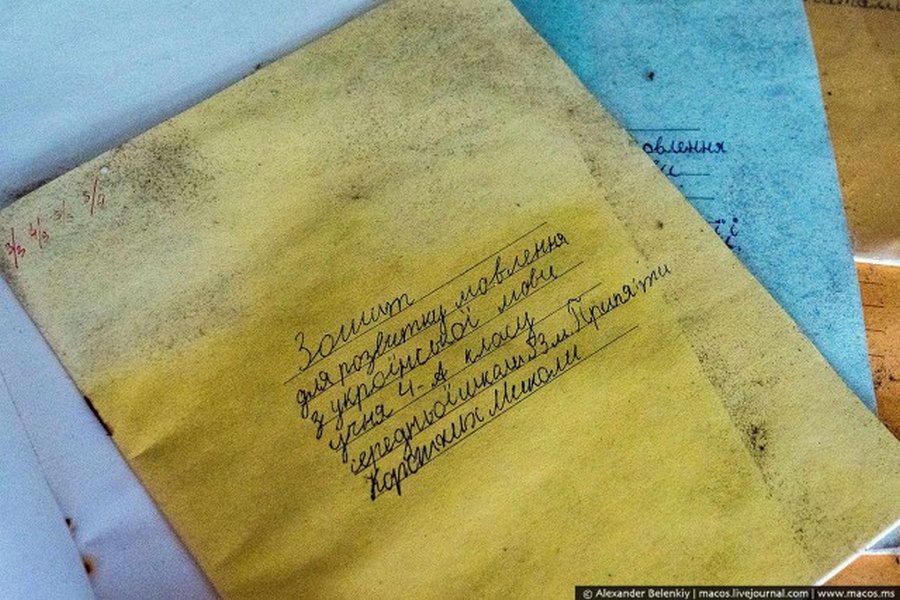 3/3 4/3 5/5 5/4
Зошит
для розвитку мовлення
з української мови
учня 4-А класу
середньої школи №3 м. Прип'яти
Миколи
овлення
ви
її
© Alexander Belenkiy | macos.livejournal.com | www.macos.ms